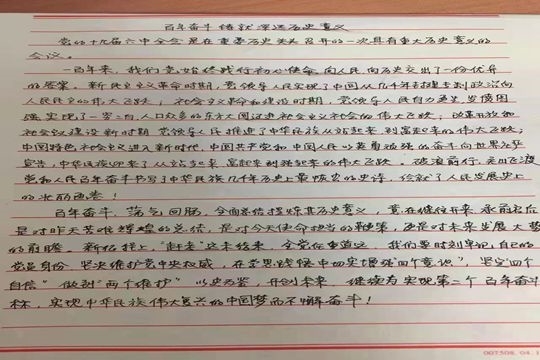 百年奋斗铸就深远历史意义
党的十九届六中全会是在重要历史关头召开的一次具有重大历史意义的
会议。
一百年来，我们党始终践行初心使命，向人民向历史交出了一份优异
的答案。新民主主义革命时期，党领导人民实现了中国从几千年封建专制政治向
人民民主的伟大飞跃；社会主义革命和建设时期，党领导人民自力更生、发愤图
强实现了一穷二白、人口众多的东方大国迈进社会主义社会的伟大飞跃；改革开放和
社会主义建设新时期，党领导人民推进了中华民族从站起来到富起来的伟大飞跃；
中国特色社会主义进入新时代，中国共产党和中国人民以英勇顽强的奋斗向世界庄严
宣告，中华民族迎来了从站起来、富起来到强起来的伟大飞跃。破浪前行，
党和人民百年奋斗书写了中华民族几千年历史上最恢宏的史诗，绘就了人民发展史上
的壮丽画卷！
百年奋斗，荡气回肠，全面总结提炼其历史意义，意在继往开来、承前启后
是对昨天苦难辉煌的总结，是对今天使命担当的鞭策，更是对未来发展大势
的前瞻。新征程上，“赶考”远未结束，全党任重道远，我们要时刻牢记自己的
党员身份，坚决维护党中央权威，在学思践悟中切实增强“四个意识”，坚定“四个
自信”做到“两个维护”以史为鉴，开创未来，继续为实现第二个百年奋斗
目标，实现中华民族伟大复兴的中国梦而不懈奋斗！
007508.04.1